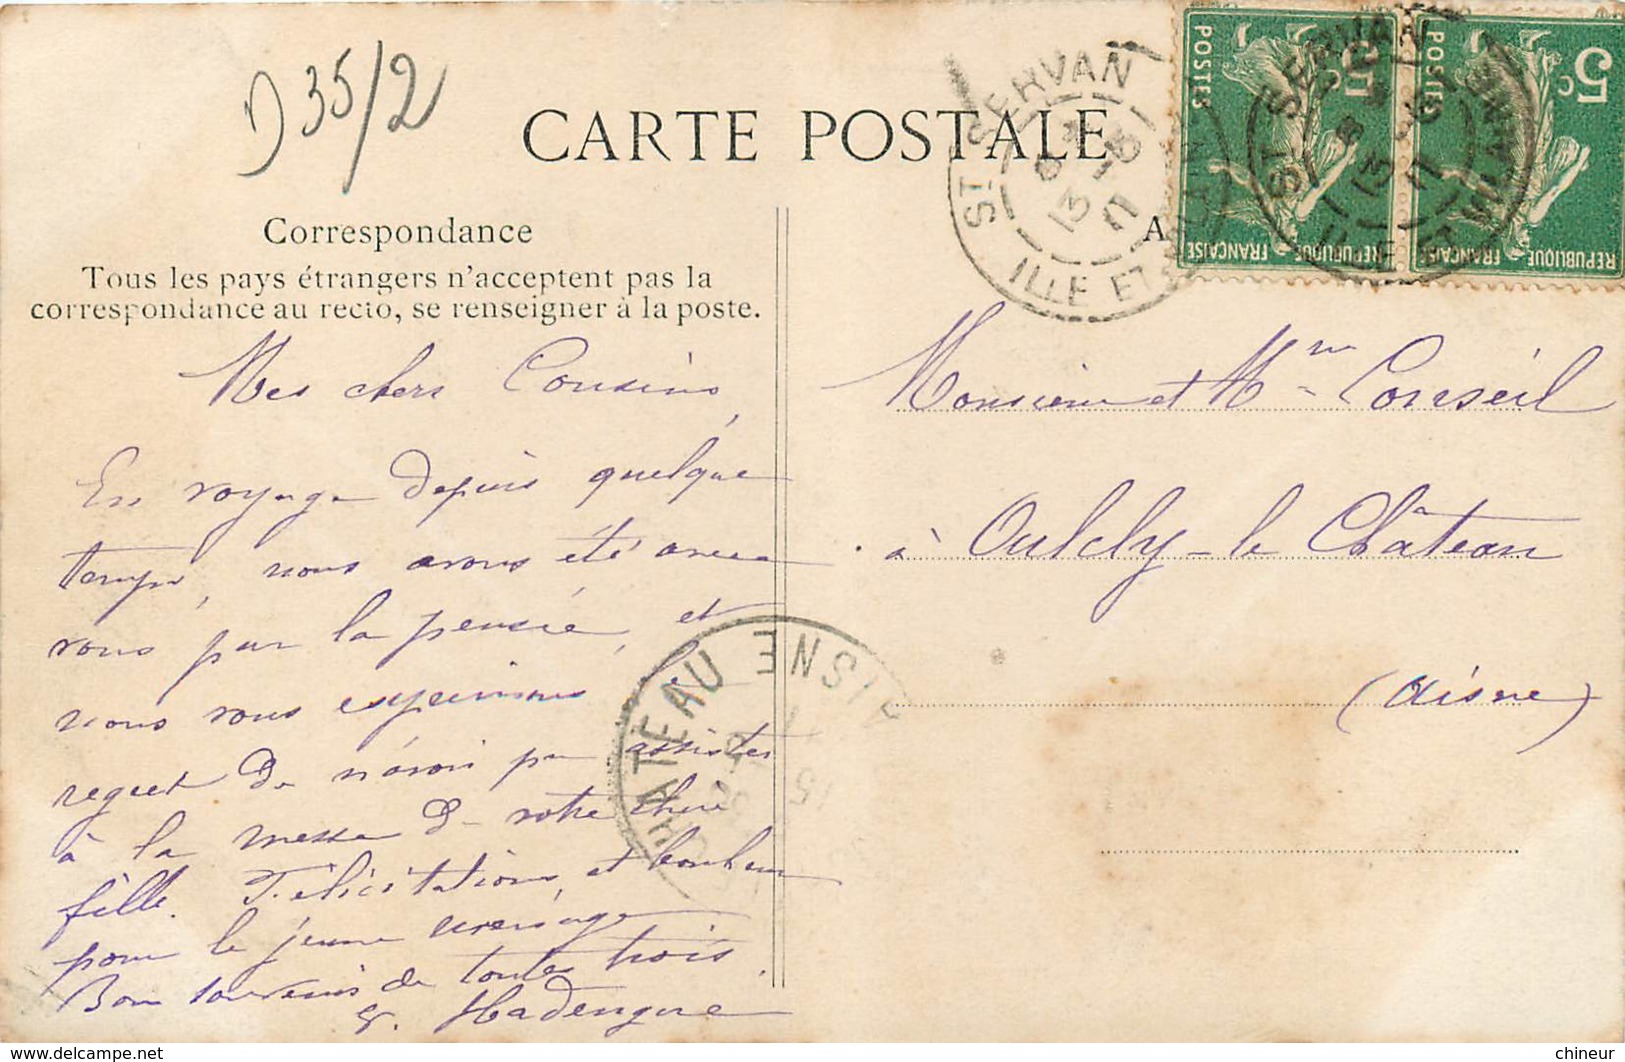 D 35/2
CARTE POSTALE
Correspondance
Tous les pays étrangers n'acceptent pas la
correspondance au recto, se renseigner à la poste.
Mes chers Cousins,
En voyage depuis quelque
temps, nous avons été avec
vous par la pensée, et
nous vous exprimons le
regret de n'avoir pu assister
à la messe de votre chère
fille. Félicitations, et bonheur
pour le jeune ménage
Bon souvenir de toutes trois.
A
Monsieur et Mme Conseil
à Oulchy-le Château
(Aisne)
ST SERVAN
ILLE ET VILAINE
13
11
POSTES
5c
RÉPUBLIQUE FRANÇAISE
POSTES
5c
RÉPUBLIQUE FRANÇAISE
ST SERVAN
13
11
ILLE ET VILAINE
CHATEAU
AISNE
15
© www.delcampe.net
chineur